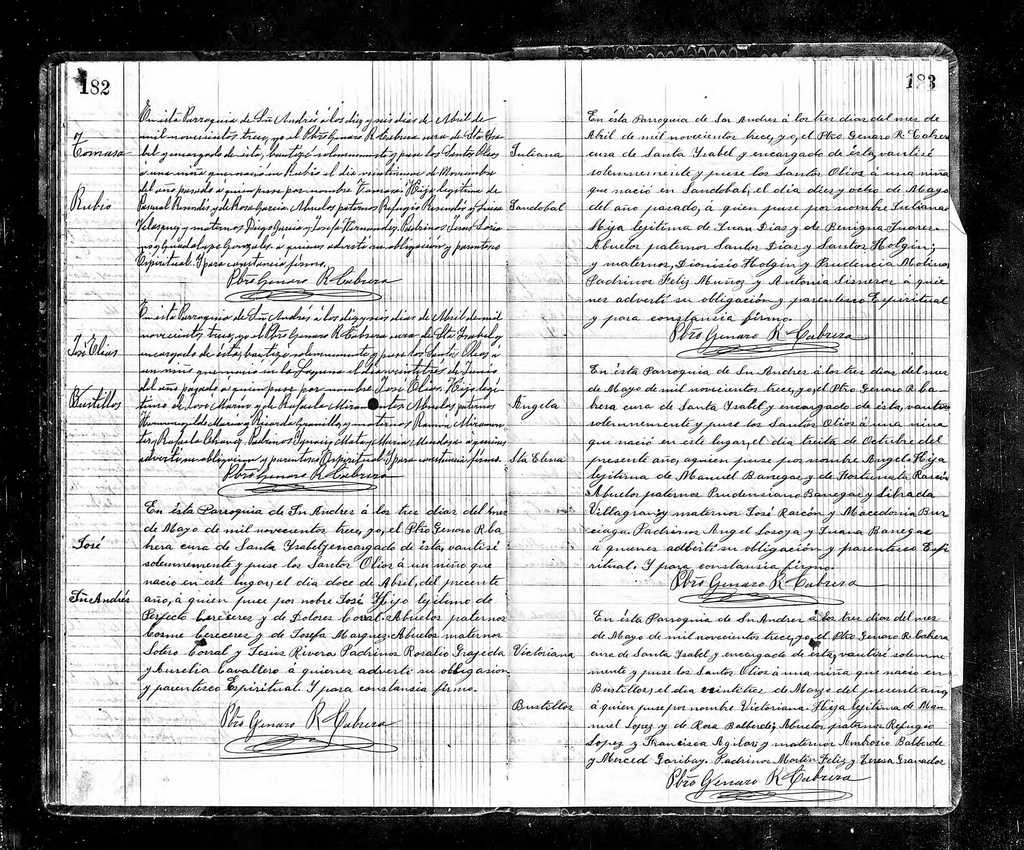 182
Tomasa
Rubio
En esta Parroquia de Sn Andrés á los diez y seis dias de Abril de
mil novecientos trece, yo el Pbro Genaro R Cabrera cura de Sta Isa-
bel y encargado de ésta, bautizé solemnemente y puse los Santos Oleos
a una niña que nacio en Rubio el dia veintiuno de Noviembre
del año pasado a quien puse por nombre Tomasa: Hija legitima de
Pascual Resendis y de Rosa Garcia, Abuelos paternos Refugio Resendis y
Velasquez y maternos Diego Garcia y Josefa Hernandez, Padrinos
y Guadalupe Gonzalez. á quienes adverti su obligacion y parentesco
Espiritual. Y para constancia firmo.
Pbro Genaro R Cabrera
José Elias
Bustillos
En esta Parroquia de Sn Andrés á los diez y seis dias de Abril de mil
novecientos trece, yo el Pbro Genaro R Cabrera cura de Sta Isabel y
encargado de ésta, bautize solemnemente y puse los Santos Oleos á
un niño que nacio en la Laguna el dia veintitres de Junio
del año pasado a quien puse por nombre José Elias. Hijo legi-
timo de José Marino y de Rafaela Miramontes Abuelos paternos
y maternos Ramon Miramon-
tes, Rafaela Chavez, Padrinos Ignacio Mata y Maria Mendoza a quienes
adverti su obligacion y parentesco Espiritual. Y para constancia firmo.
Pbro Genaro R Cabrera
José
Sn Andrés
En ésta Parroquia de Sn Andres á los tres dias del mes
de Mayo de mil novecientos trece, yo, el Pbro Genaro R. Ca-
brera cura de Santa Ysabel y encargado de ésta, vautisé
solemnemente y puse los Santos Olios á un niño que
nacio en este lugar, el dia doce de Abril, del precente
año, á quien puse por nobre José Hijo lejitimo de
Perfecto Cereceres y de Dolores Corral. Abuelos paternos
Cosme Cereceres y de Josefa Marquez. Abuelos maternos
Sotero Corral y Jesus Rivera Padrinos Rosalio Grajeda
y Aurelia Cavallero á quienes adverti su obligasion
y parentesco Espiritual. Y para constansia firmo.
Pbro Genaro R Cabrera
183
Juliana
Sandobal
En ésta Parroquia de San Andres á los tres dias del mes de
Abil de mil novecientos trece, yo, el Pbro Genaro R. Cabrera
cura de Santa Ysabel y encargado de ésta, vautisé
solemnemente y puse los Santos Olios á una niña
que nació en Sandobal, el dia dies y ocho de Mayo
del año pasado, á quien puse por nombre Juliana
Hija lejitima de Juan Dias y de Benigna Juares.
Abuelos paternos Santos Dias y Santos Holgin;
y maternos, Dionisio Holgin y Prudencia Molina
Padrinos Feliz Muños y Antonia Sisneros a quie-
nes advertí su obligación y parentesco Espiritual
y para constansia firmo.
Pbro Genaro R Cabrera
Angela
Sta Elena
En ésta Parroquia de Sn Andres á los tres dias del mes
de Mayo de mil novecientos trece, yo, el Pbro Genaro R. Ca-
brera cura de Santa Ysabel y encargado de ésta, vautise
solemnemente y puse los Santos Olios á una niña
que nació en este lugar, el dia treita de Octubre del
presente año, aquien puse por nombre Angela Hija
lejitima de Manuel Banegas y de Hortunata Rascón
Abuelos paternos Prudensiano Banegas y Librada
Villagran y maternos José Rascón y Macedonia Bur-
ciaga Padrinos Angel Losoya y Juana Banegas
a quienes adberti su obligasión y parentesco Espi-
ritual. Y para constansia firmo.
Pbro Genaro R Cabrera
Victoriana
Bustillos
En ésta Parroquia de Sn Andres á los tres dias del mes
de Mayo de mil novecientos trece, yo, el Pbro Genaro R. Cabrera
cura de Santa Ysabel y encargado de ésta, vautisé solemne-
mente y puse los Santos Olios á una niña que nació en
Bustillos, el dia veintitres de Marzo del presente año,
á quien puse por nombre Victoriana Hija lejitima de Ma-
nuel Lopez y de Rosa Balberde; Abuelos paternos Refugio
Lopez y Francisca Agilar; y maternos Ambrosio Balberde
y Merced Garibay. Padrinos Martin Feliz y Teresa Granados
Pbro Genaro R Cabrera